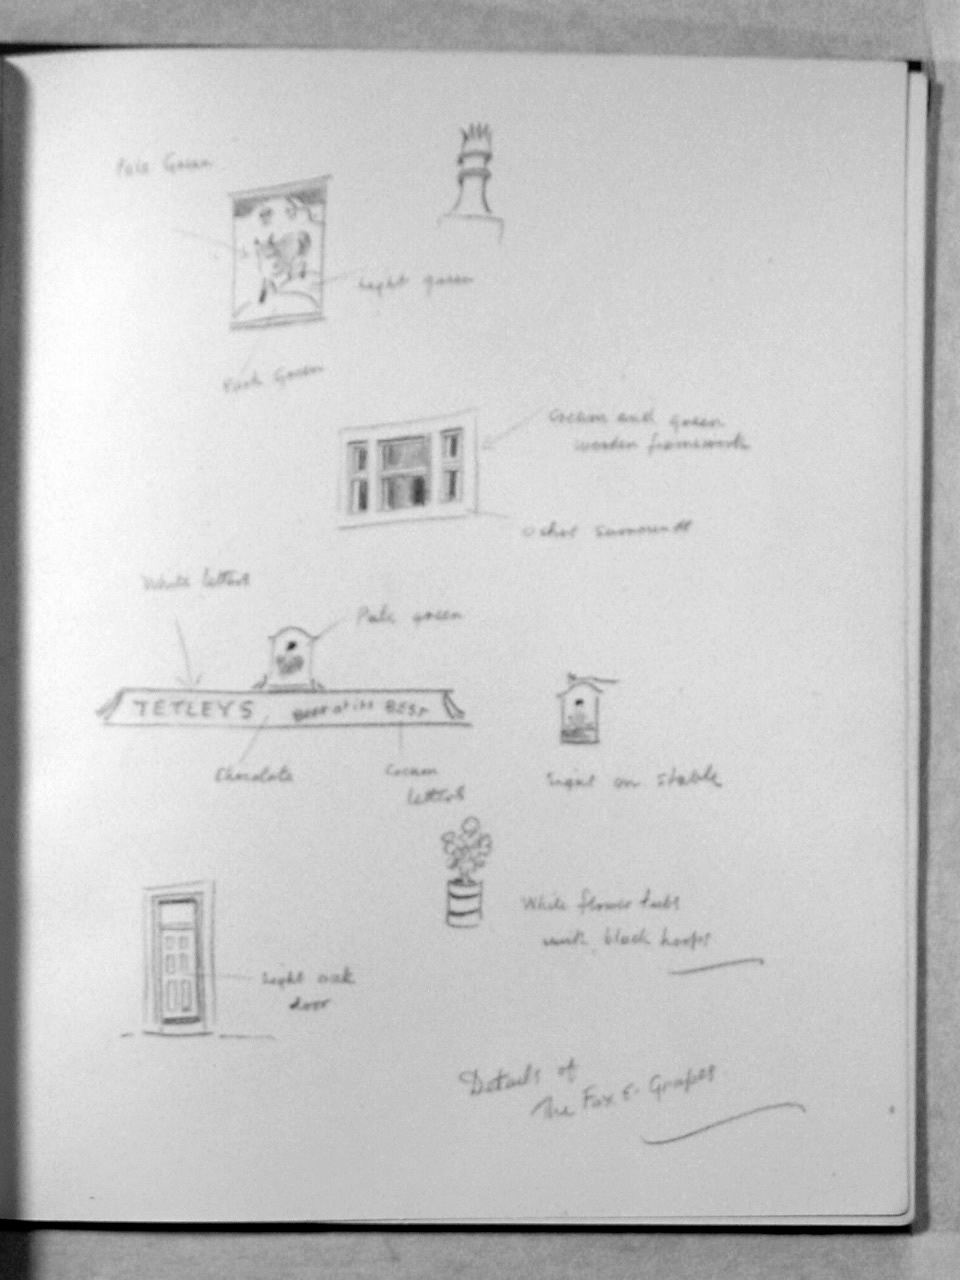 Pale Green
Light green
Dark Green
Cream and green
wooden framework
Ochre Surround
White letters
Pale green
TETLEYS BEER at its BEST
Chocolate
Cream
letters
on stable
White flower tubs
with black hoops
Light oak
door
Details of
The Fox & Grapes